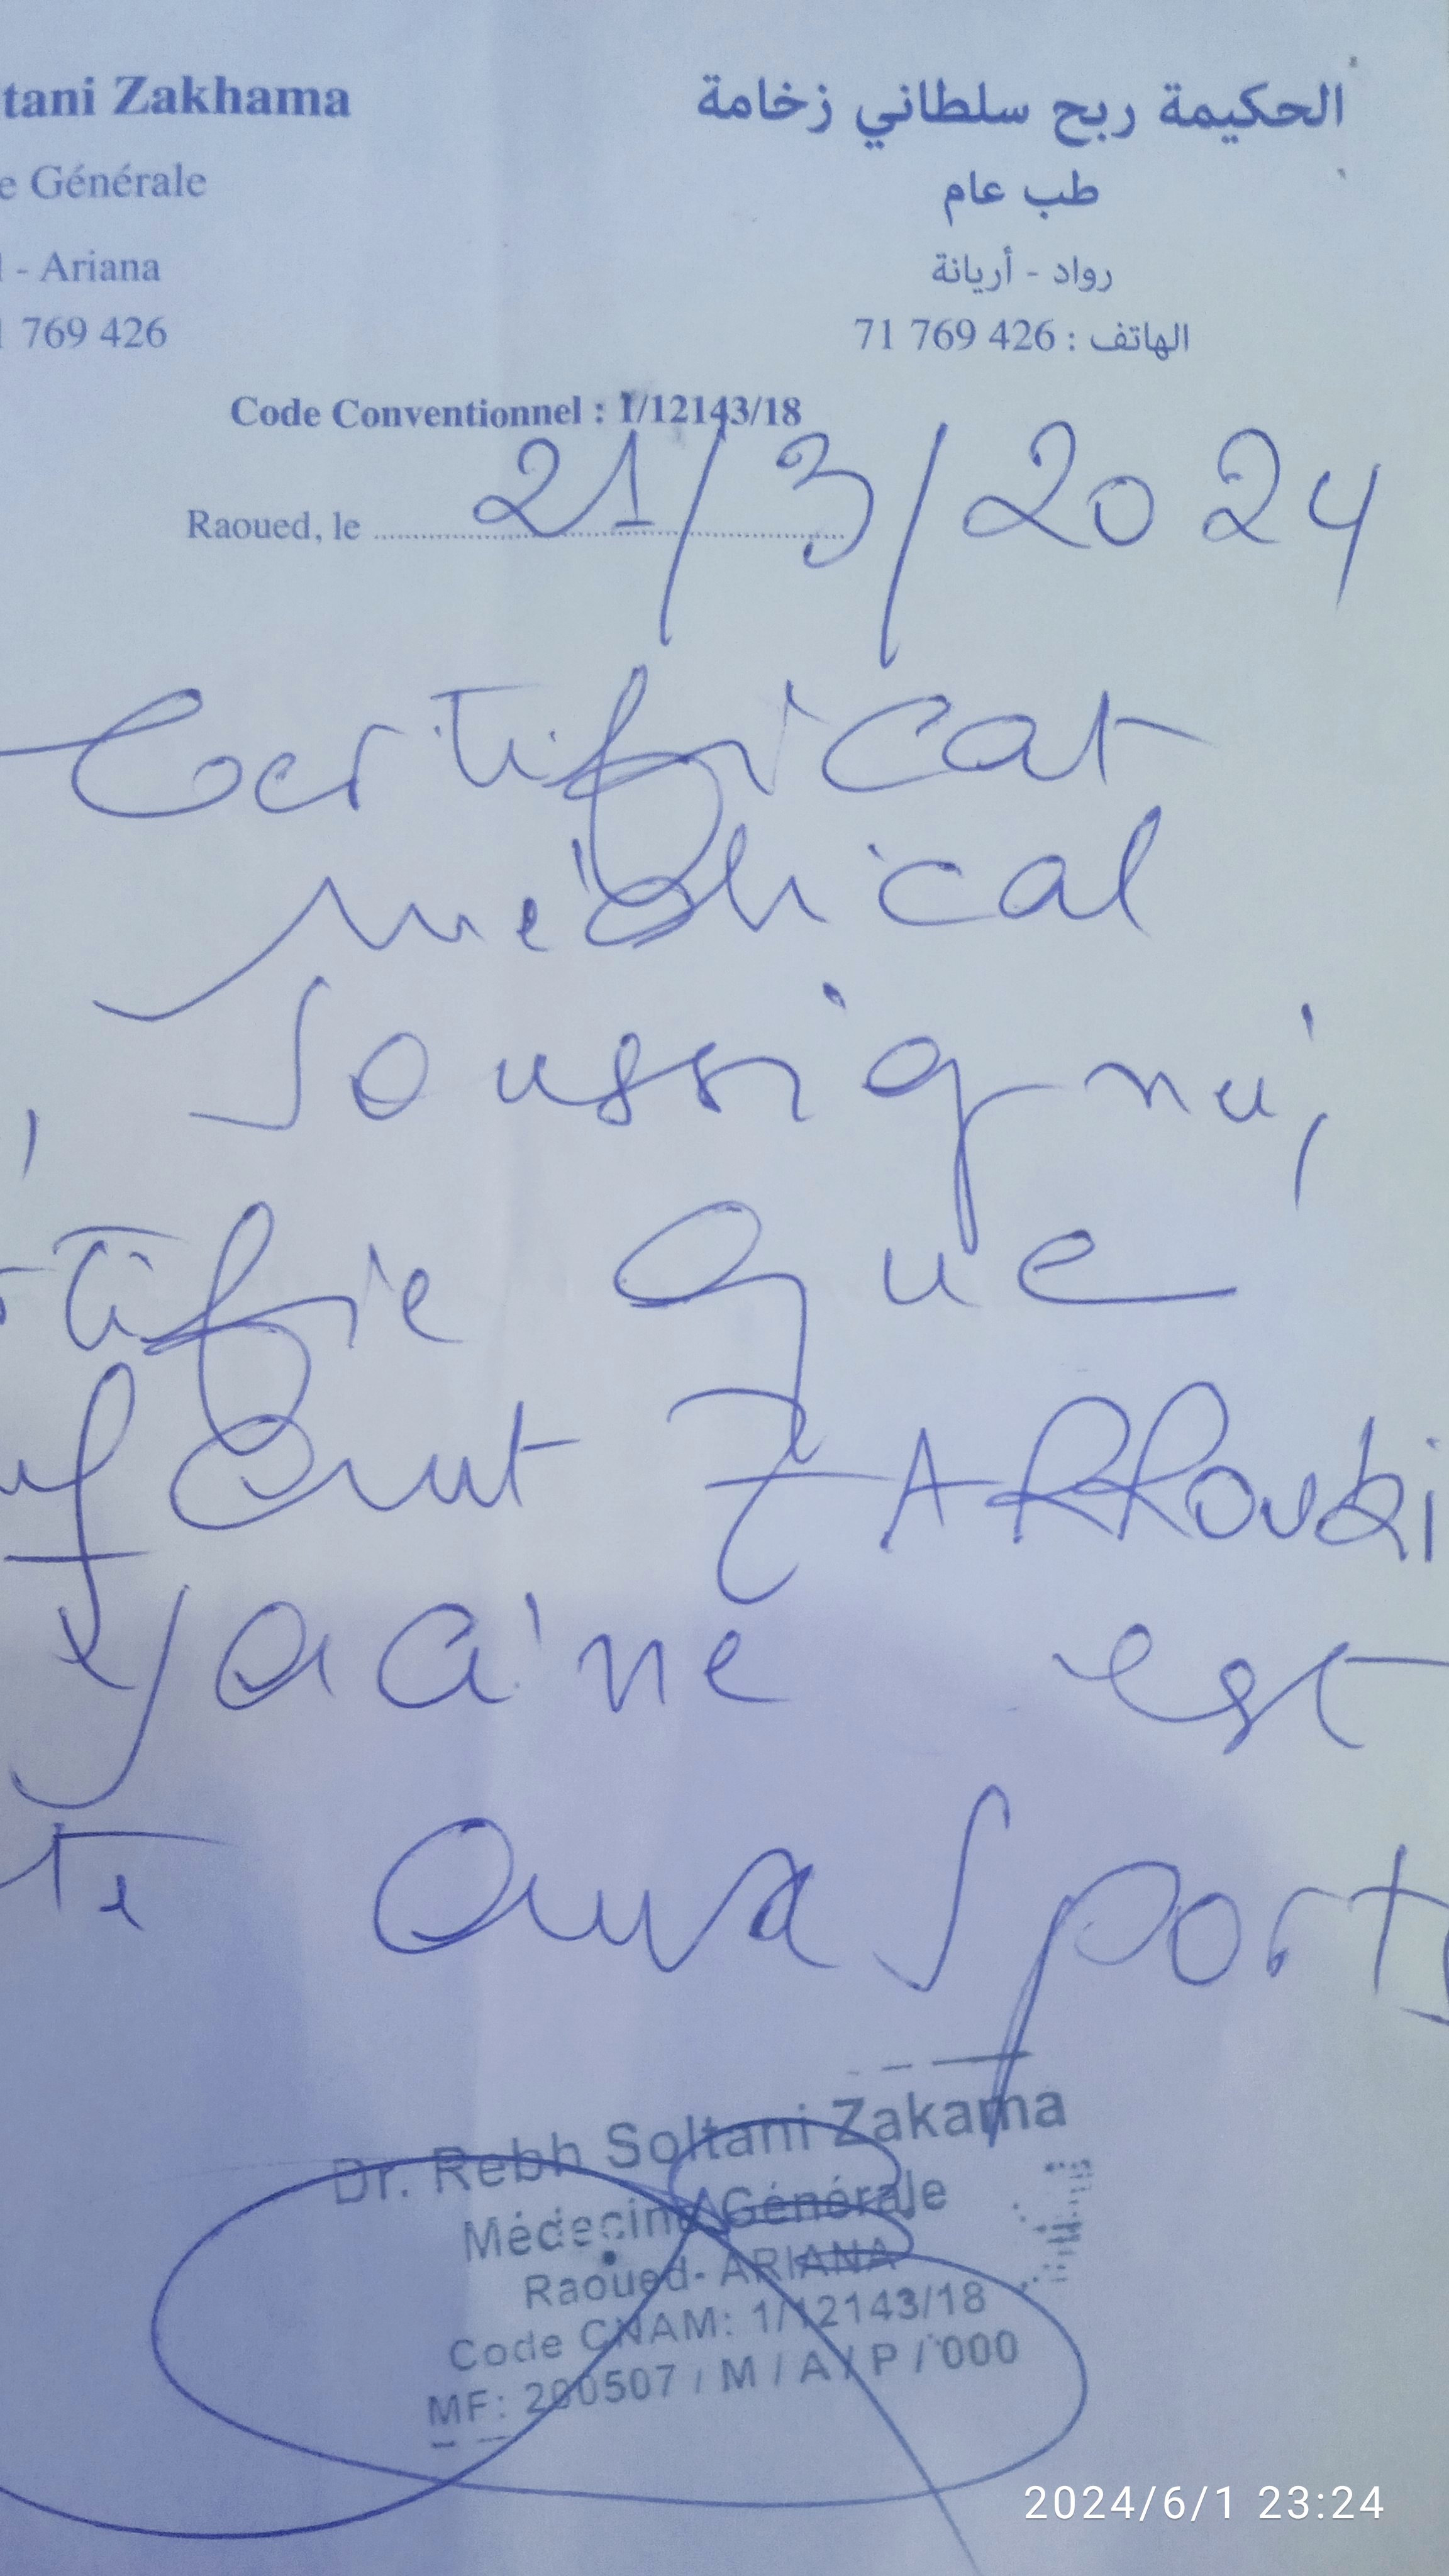 tani Zakhama
الحكيمة ربح سلطاني زخامة
e Générale
طب عام
- Ariana
رواد - أريانة
769 426
الهاتف : 71 769 426
Code Conventionnel : 1/12143/18
Raoued, le 21/3/2024
Certificat
médical
, Soussigné,
tifie que
enfant ZARROUKI
yacine est
te aux Sports
Dr. Rebh Soltani Zakama
Médecine Générale
Raoued- ARIANA
Code CNAM: 1/12143/18
MF: 200507 / M / A / P / 000
2024/6/1 23:24